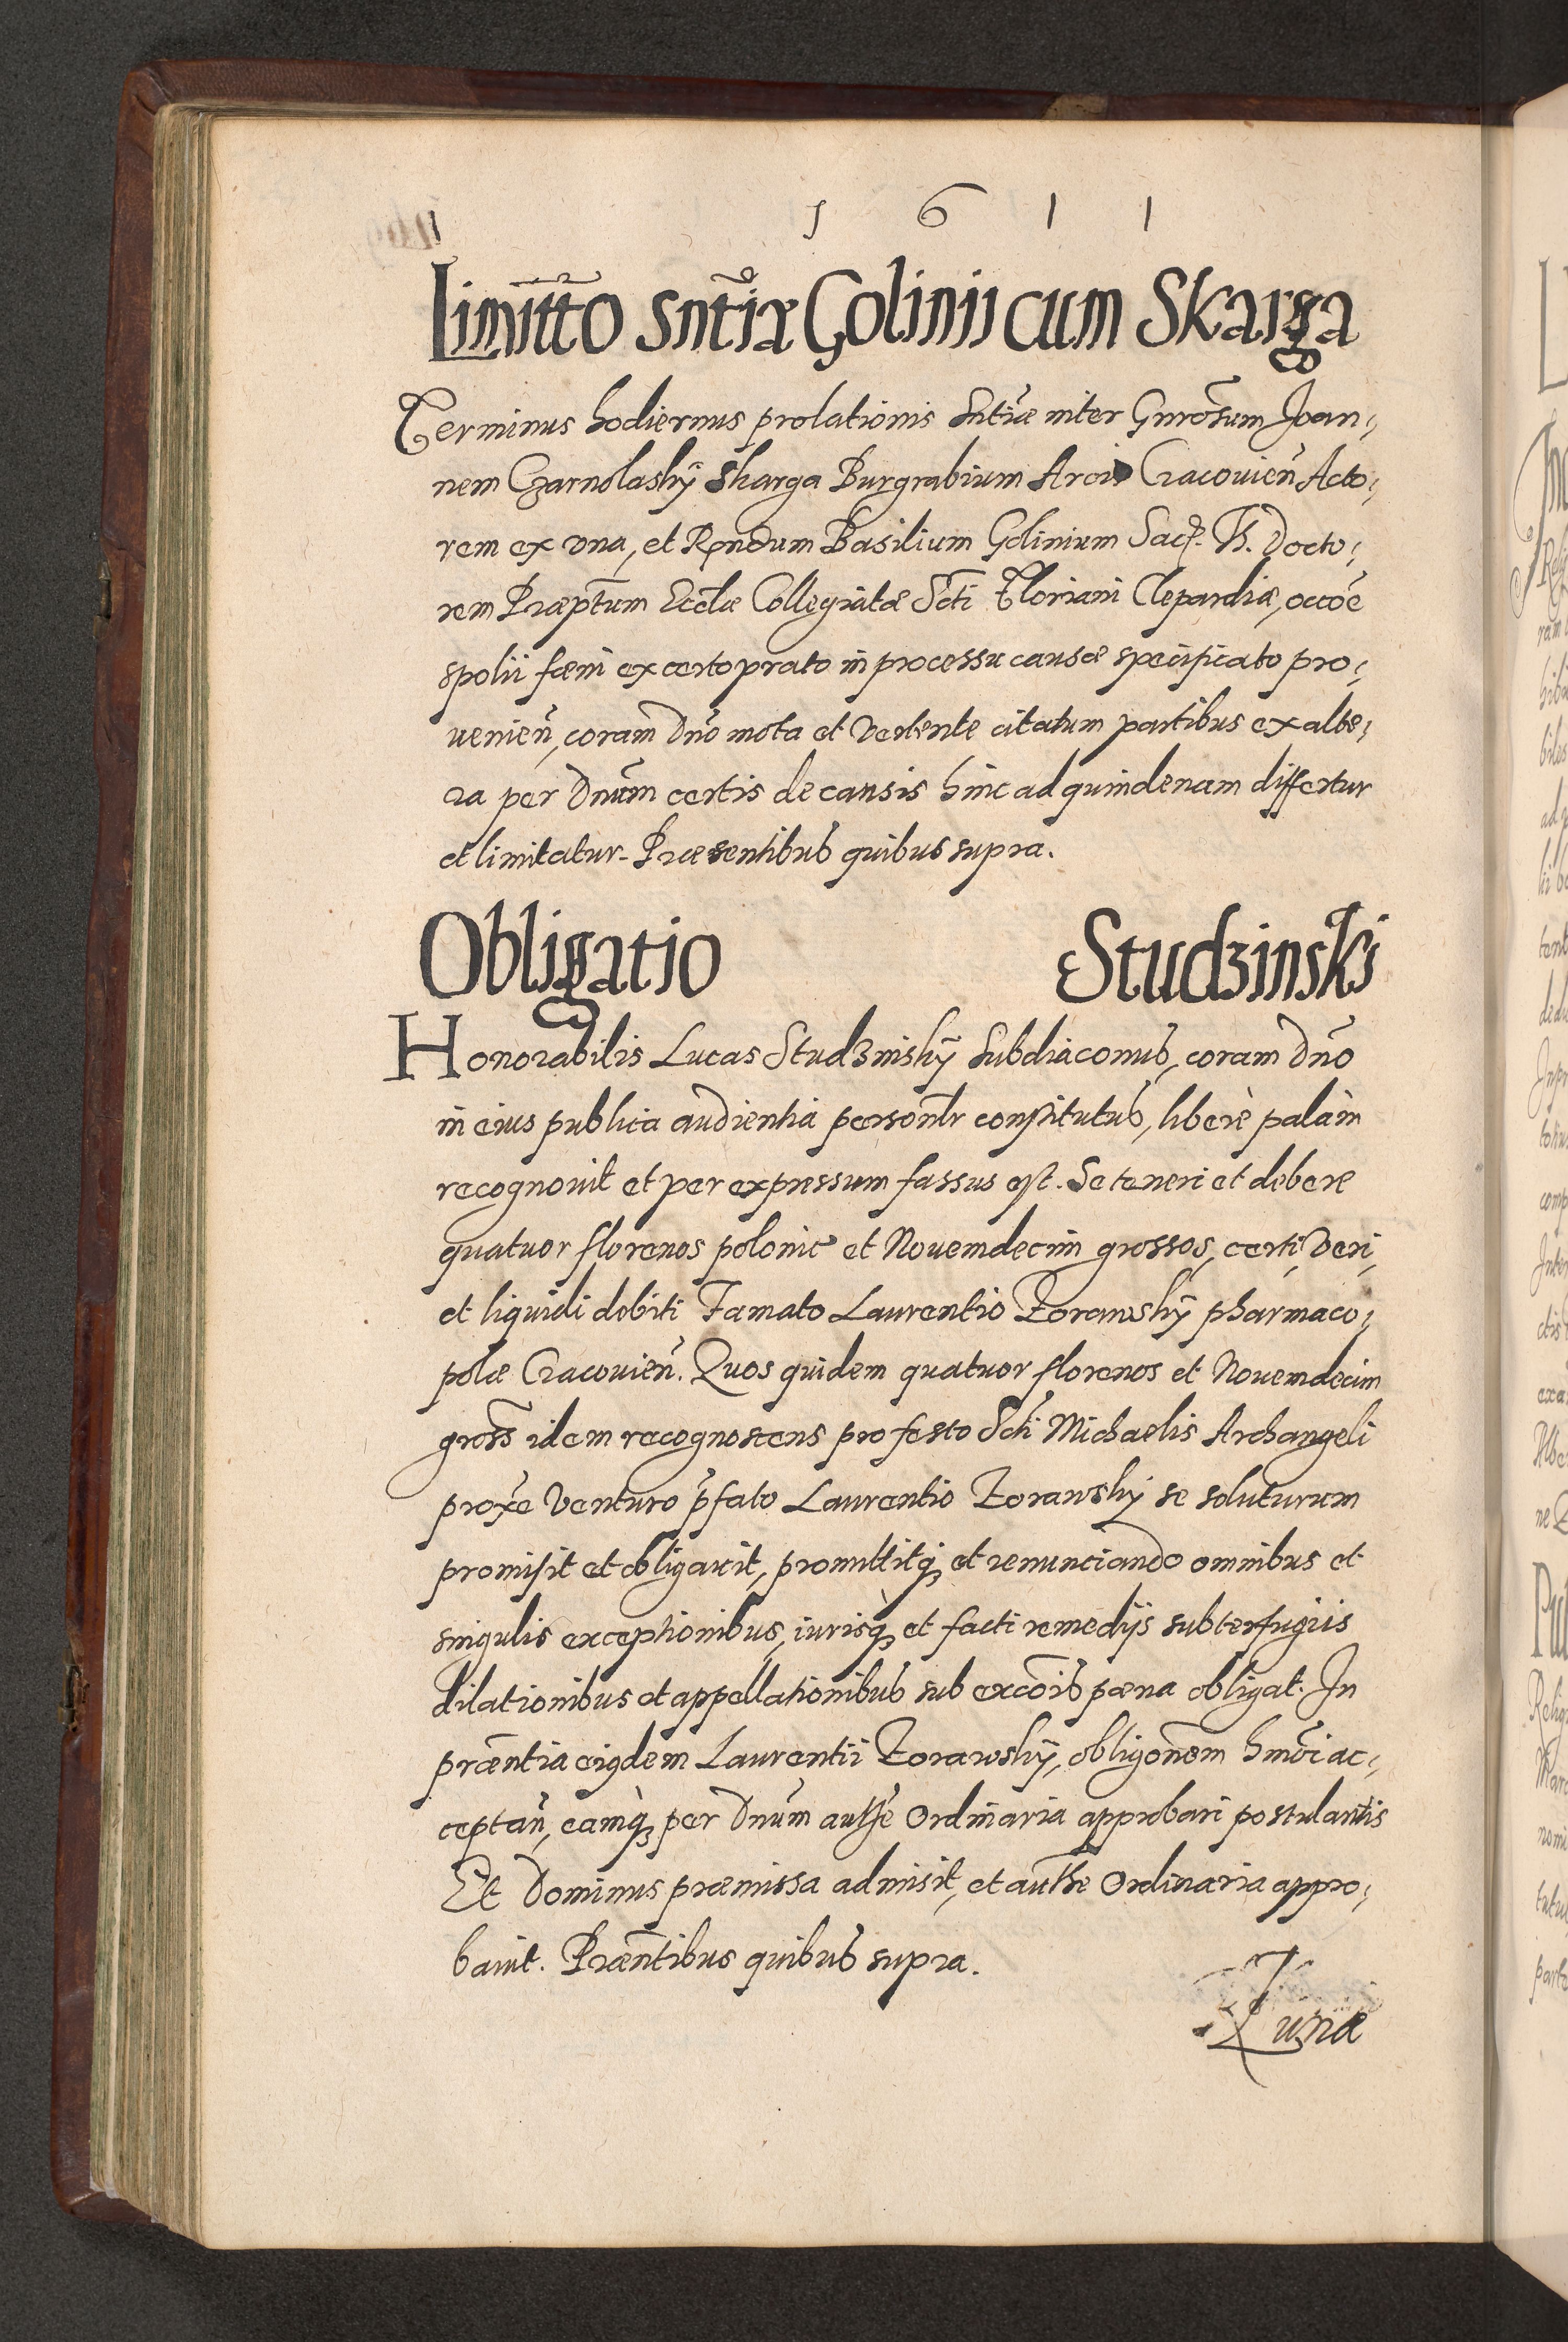 1 6 1 1
Limitto sntiæ Golinii cum Skarga
Terminus hodiernus prolationis Sntiæ inter Gnrosum Joan,
nem Czarnolasky Skarga Burgrabium Arcis Cracouien Acto,
rem ex una, et Rndum Basilium Golinium Sacr. Th. Docto,
rem Præptum Eccliæ Collegiatæ Scti Floriani Clepardiæ, occõe
spolii fœni ex certo prato in processu causæ specificato pro,
uenien, coram Dno mota et vertente citatum partibus ex alte,
ra per Dnum certis de causis hinc ad quindenam differtur
et limitatur. Præsentibus quibus supra.
Obligatio Studzinski
Honorabilis Lucas Studzinsky Subdiaconus, coram Dno
in eius publica audientia personlr constitutus, liberè palàm
recognouit et per expressum fassus est. Se teneri et debere
quatuor florenos polonic et Nouemdecim grossos, certi, veri,
et liquidi debiti Famato Laurentio Zorawsky pharmaco,
polæ Cracouien. Quos quidem quatuor florenos et Nouemdecim
gross idem recognoscens pro festo Scti Michaelis Archangeli
proxe venturo pfato Laurentio Zorawsky se soluturum
promisit et obligauit, promittitq; et renunciando omnibus et
singulis exceptionibus, iurisq; et facti remedijs subterfugiis
dilationibus et appellationibus sub excõis pœna obligat. In
præntia eiusdem Laurentii Zorawsky, obligonem hmõi ac,
ceptan, eamq; per Dnum authe Ordinaria approbari postulantis
Et Dominus præmissa admisit, et authe Ordinaria appro,
bauit. Præntibus quibus supra.
Lunæ